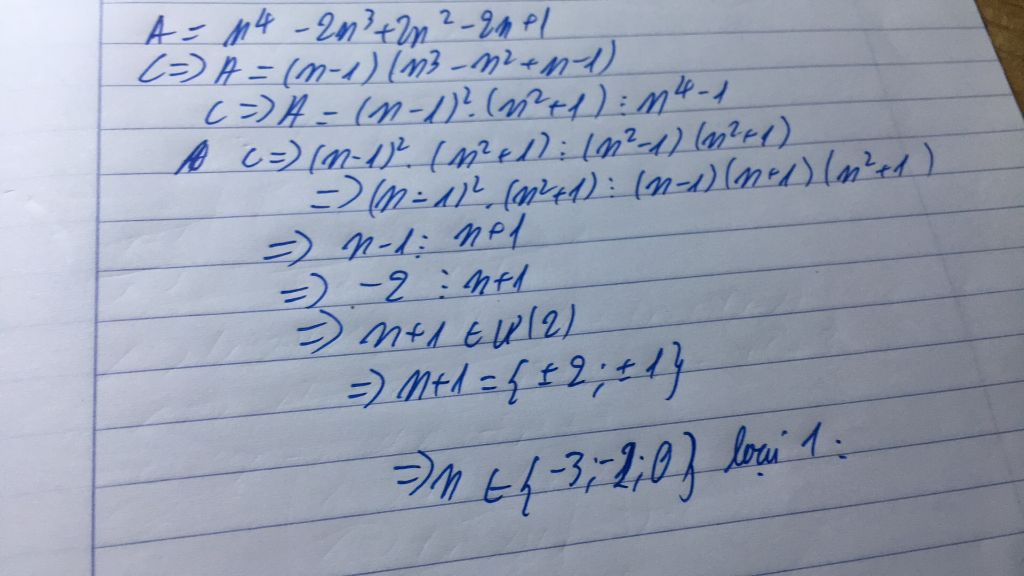 A = n⁴ - 2n³ + 2n² - 2n + 1
<=> A = (n-1) (n³ - n² + n - 1)
<=> A = (n-1)². (n² + 1) ⋮ n⁴ - 1
<=> (n-1)². (n² + 1) ⋮ (n² - 1) (n² + 1)
=> (n-1)². (n² + 1) ⋮ (n-1) (n+1) (n² + 1)
=> n-1 ⋮ n+1
=> -2 ⋮ n+1
=> n+1 ∈ Ư(2)
=> n+1 = {±2; ±1}
=> n ∈ {-3; -2; 0} loại 1.